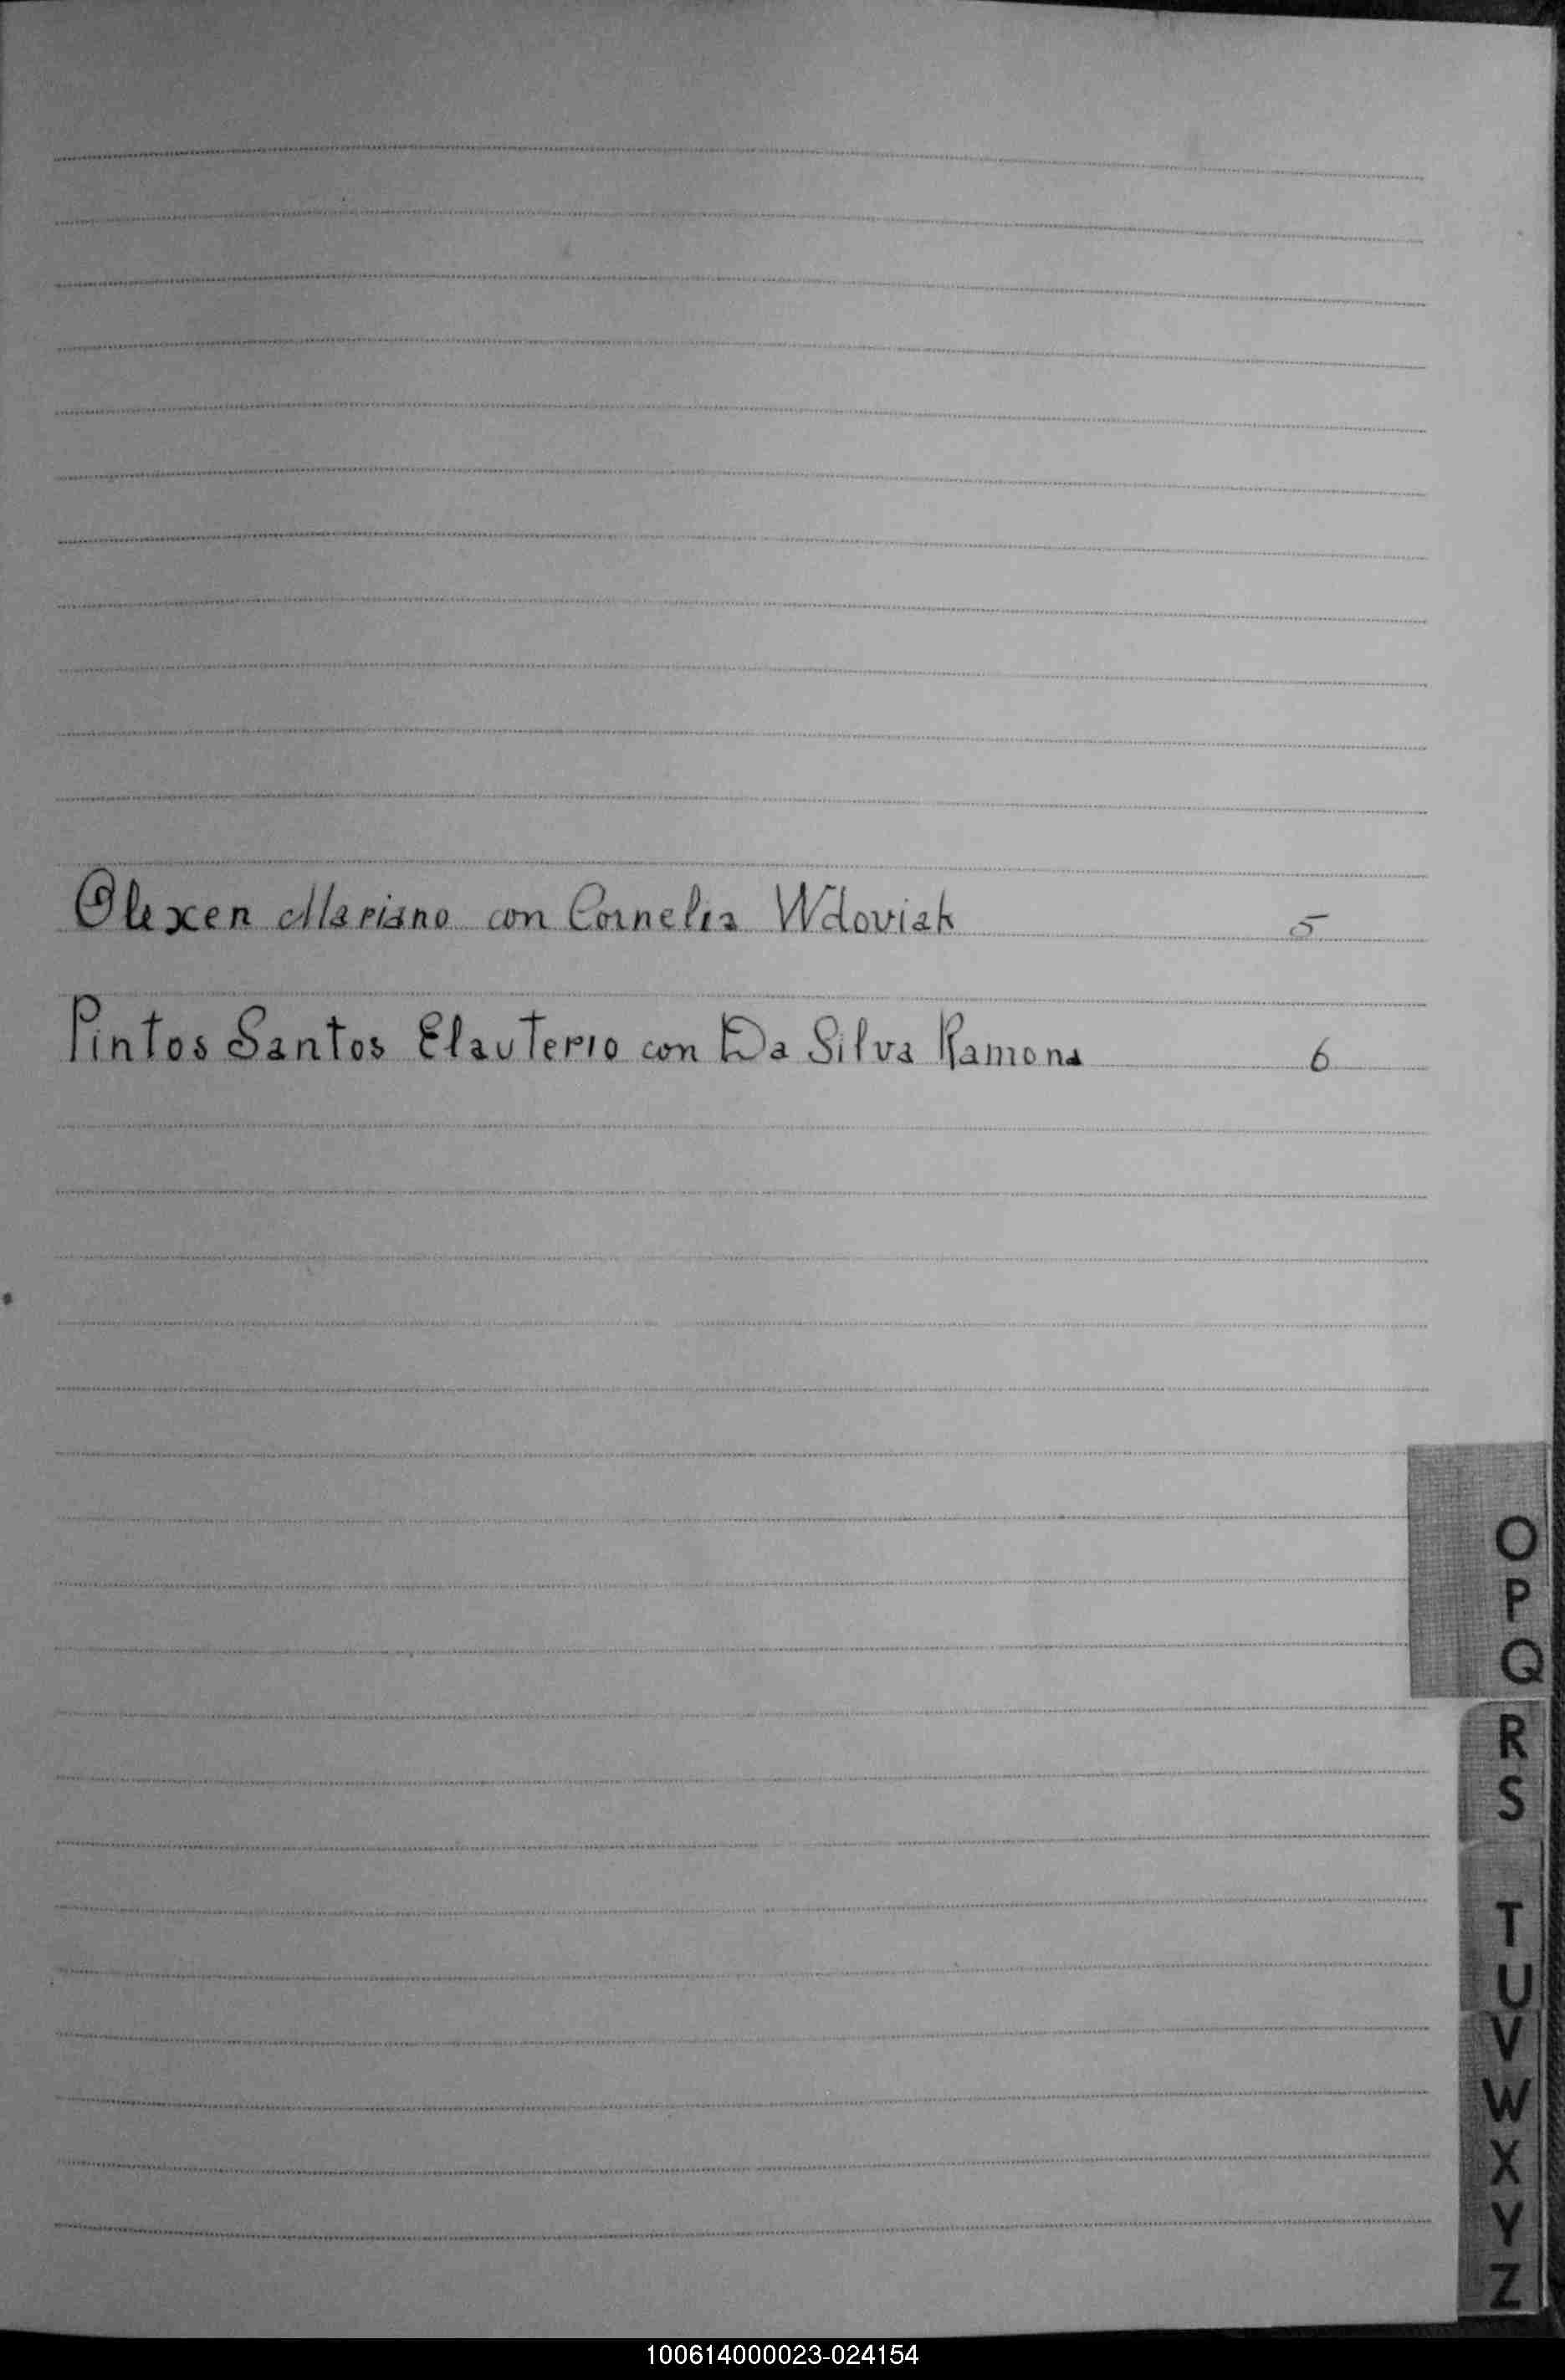 Olexen Mariano con Cornelia Wdoviak 5
Pintos Santos Elauterio con Da Silva Ramona 6
O
P
Q
R
S
T
U
V
W
X
Y
Z
100614000023-024154